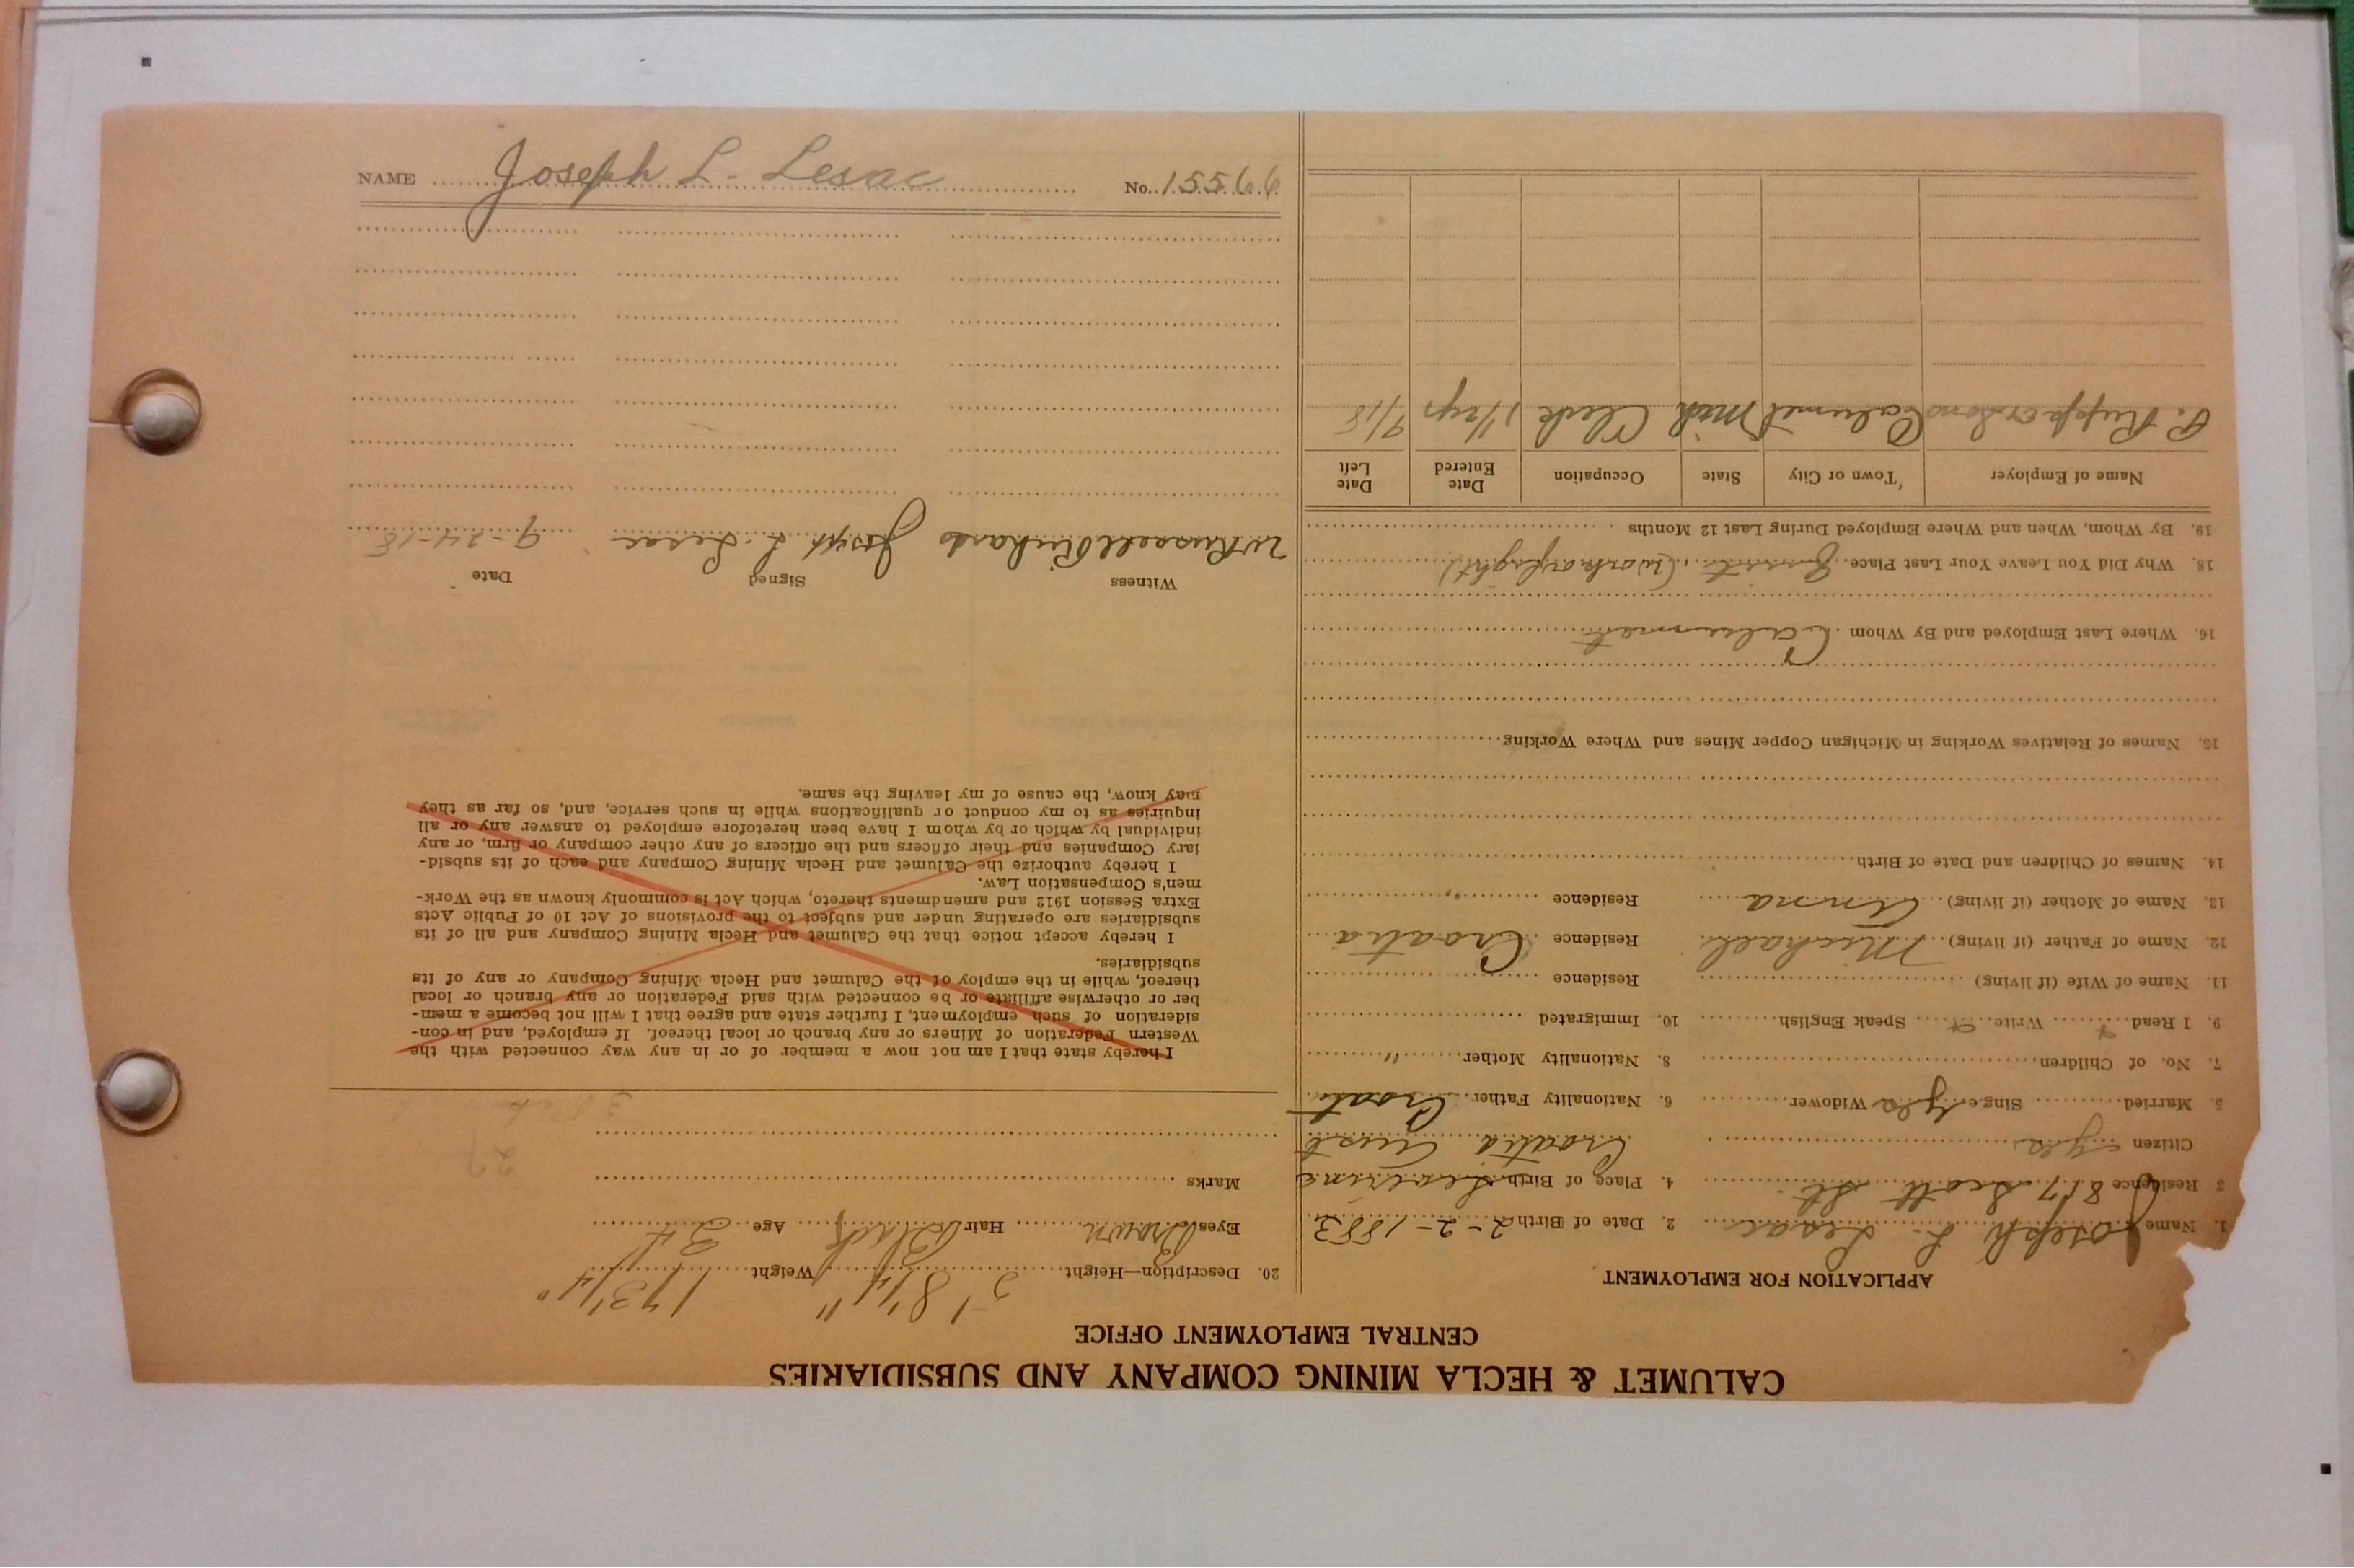 CALUMET & HECLA MINING COMPANY AND SUBSIDIARIES
CENTRAL EMPLOYMENT OFFICE
APPLICATION FOR EMPLOYMENT
1. Name Joseph L. Lesac 2. Date of Birth 2-2-1883
3 Residence 817 Scott St. 4. Place of Birth
Citizen yes Croatia Aust
5. Married Single yes Widower 6. Nationality Father Croat
7. No. of Children 8. Nationality Mother "
9. I Read Write Speak English 10. Immigrated
11. Name of Wife (if living) Residence
12. Name of Father (if living) Michael Residence Croatia
13. Name of Mother (if living) Anna Residence "
14. Names of Children and Date of Birth
15. Names of Relatives Working in Michigan Copper Mines and Where Working
16. Where Last Employed and By Whom Calumet
18. Why Did You Leave Your Last Place Quit (
19. By Whom, When and Where Employed During Last 12 Months
Name of Employer Town or City State Occupation Date Entered Date Left
P. Ruppe & Sons Calumet Mich Clerk 1 1/2 yrs 9/18
20. Description—Height 5' 8 1/4" Weight 173 1/4"
Eyes Brown Hair Black Age 34
Marks
29
I hereby state that I am not now a member of or in any way connected with the
Western Federation of Miners or any branch or local thereof. If employed, and in con-
sideration of such employment, I further state and agree that I will not become a mem-
ber or otherwise affiliate or be connected with said Federation or any branch or local
thereof, while in the employ of the Calumet and Hecla Mining Company or any of its
subsidiaries.
I hereby accept notice that the Calumet and Hecla Mining Company and all of its
subsidiaries are operating under and subject to the provisions of Act 10 of Public Acts
Extra Session 1912 and amendments thereto, which Act is commonly known as the Work-
men's Compensation Law.
I hereby authorize the Calumet and Hecla Mining Company and each of its subsid-
iary Companies and their officers and the officers of any other company or firm, or any
individual by which or by whom I have been heretofore employed to answer any or all
inquiries as to my conduct or qualifications while in such service, and, so far as they
may know, the cause of my leaving the same.
Witness Signed Date
W Russell Richards Joseph L. Lesac 9-24-18
NAME Joseph L. Lesac No. 15566